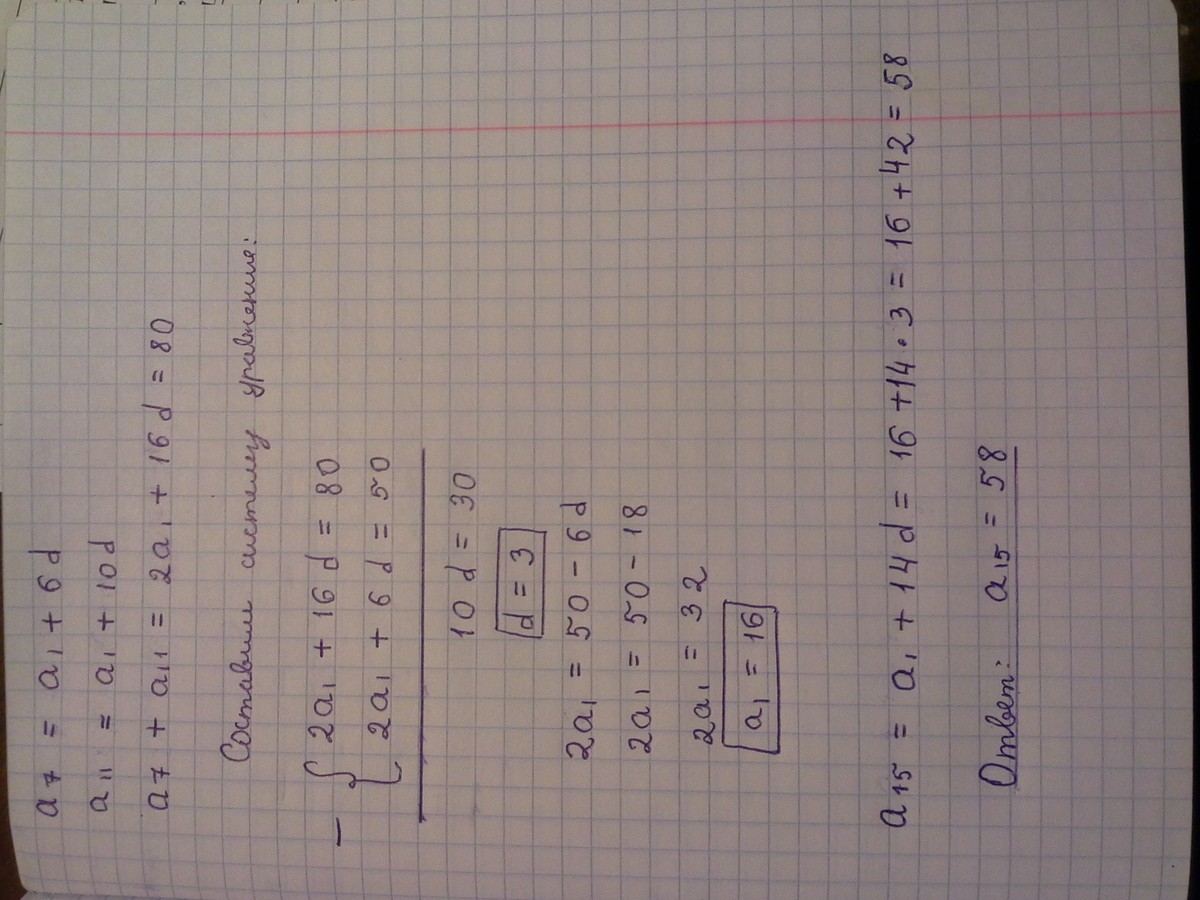 a7 = a1 + 6d
a11 = a1 + 10d
a7 + a11 = 2a1 + 16d = 80
Составим систему уравнение:
− { 2a1 + 16d = 80
2a1 + 6d = 50
10d = 30
d = 3
2a1 = 50 - 6d
2a1 = 50 - 18
2a1 = 32
a1 = 16
a15 = a1 + 14d = 16 + 14 · 3 = 16 + 42 = 58
Ответ: a15 = 58